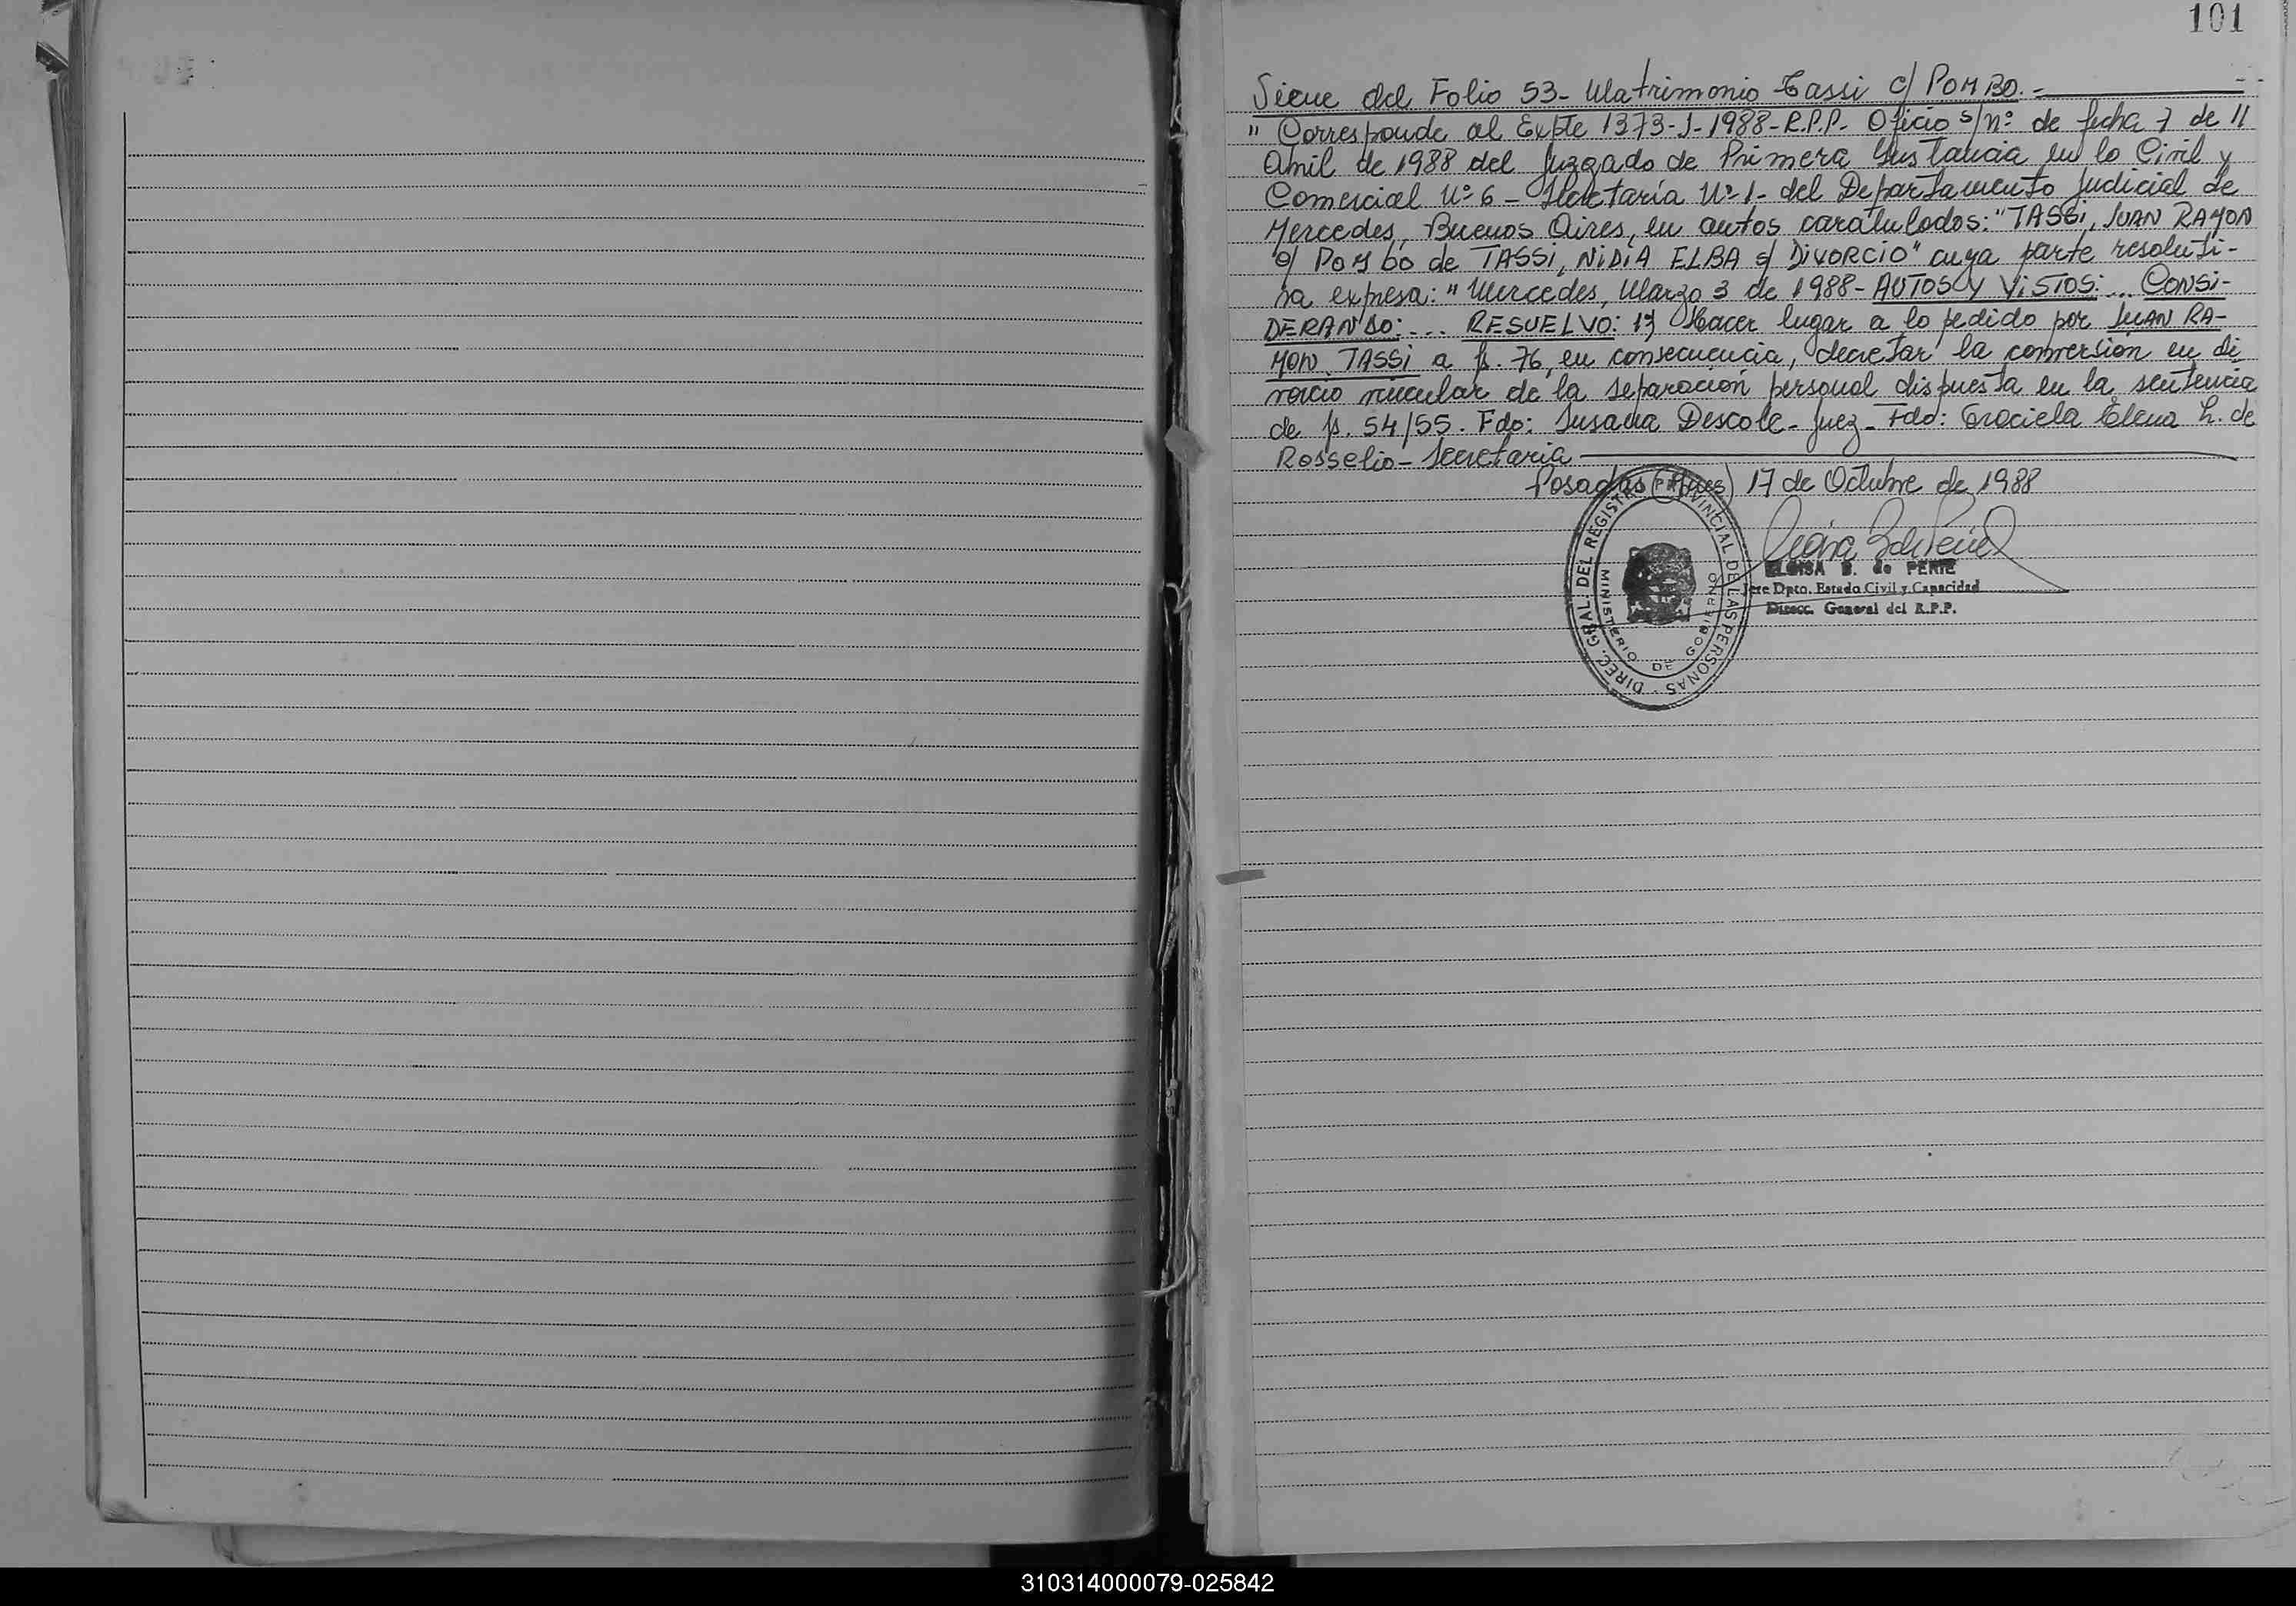 101
Sieue del Folio 53- Matrimonio Tassi c/ POMBO.-
" Corresponde al Expte 1373-J-1988-R.P.P. Oficio s/nº de fecha 7 de 11
Abril de 1988 del Juzgado de Primera Instancia en lo Civil y
Comercial Nº 6 - Secretaría Nº 1- del Departamento Judicial de
Mercedes, Buenos Aires, en autos caratulados: "TASSi, JUAN RAMON
c/ POMbo de TASSi, NiDiA ELBA s/ DiVORCiO" cuya parte resoluti-
va expresa: " Mercedes, Marzo 3 de 1988- AUTOS Y ViSTOS: ... CONSi-
DERANDO: ... RESUELVO: 1º) Hacer lugar a lo pedido por JUAN RA-
MON TASSi a fs. 76, en consecuencia, decretar la conversión en di
vorcio vincular de la separación personal dispuesta en la sentencia
de fs. 54/55. Fdo: Susana Descole- Juez- Fdo: Graciela Elena L. de
Rosselio- Secretaria
Posadas (Mnes) 17 de Octubre de 1988
ELOISA B. de PERIE
Jefe Dpto. Estado Civil y Capacidad
Direcc. General del R.P.P.
DIREC. GRAL. DEL REGISTRO PROVINCIAL DE LAS PERSONAS -
MINISTERIO DE GOBIERNO
310314000079-025842